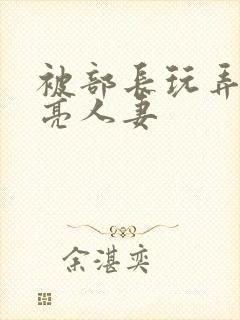 被部长玩弄
亮人妻
余湛奕